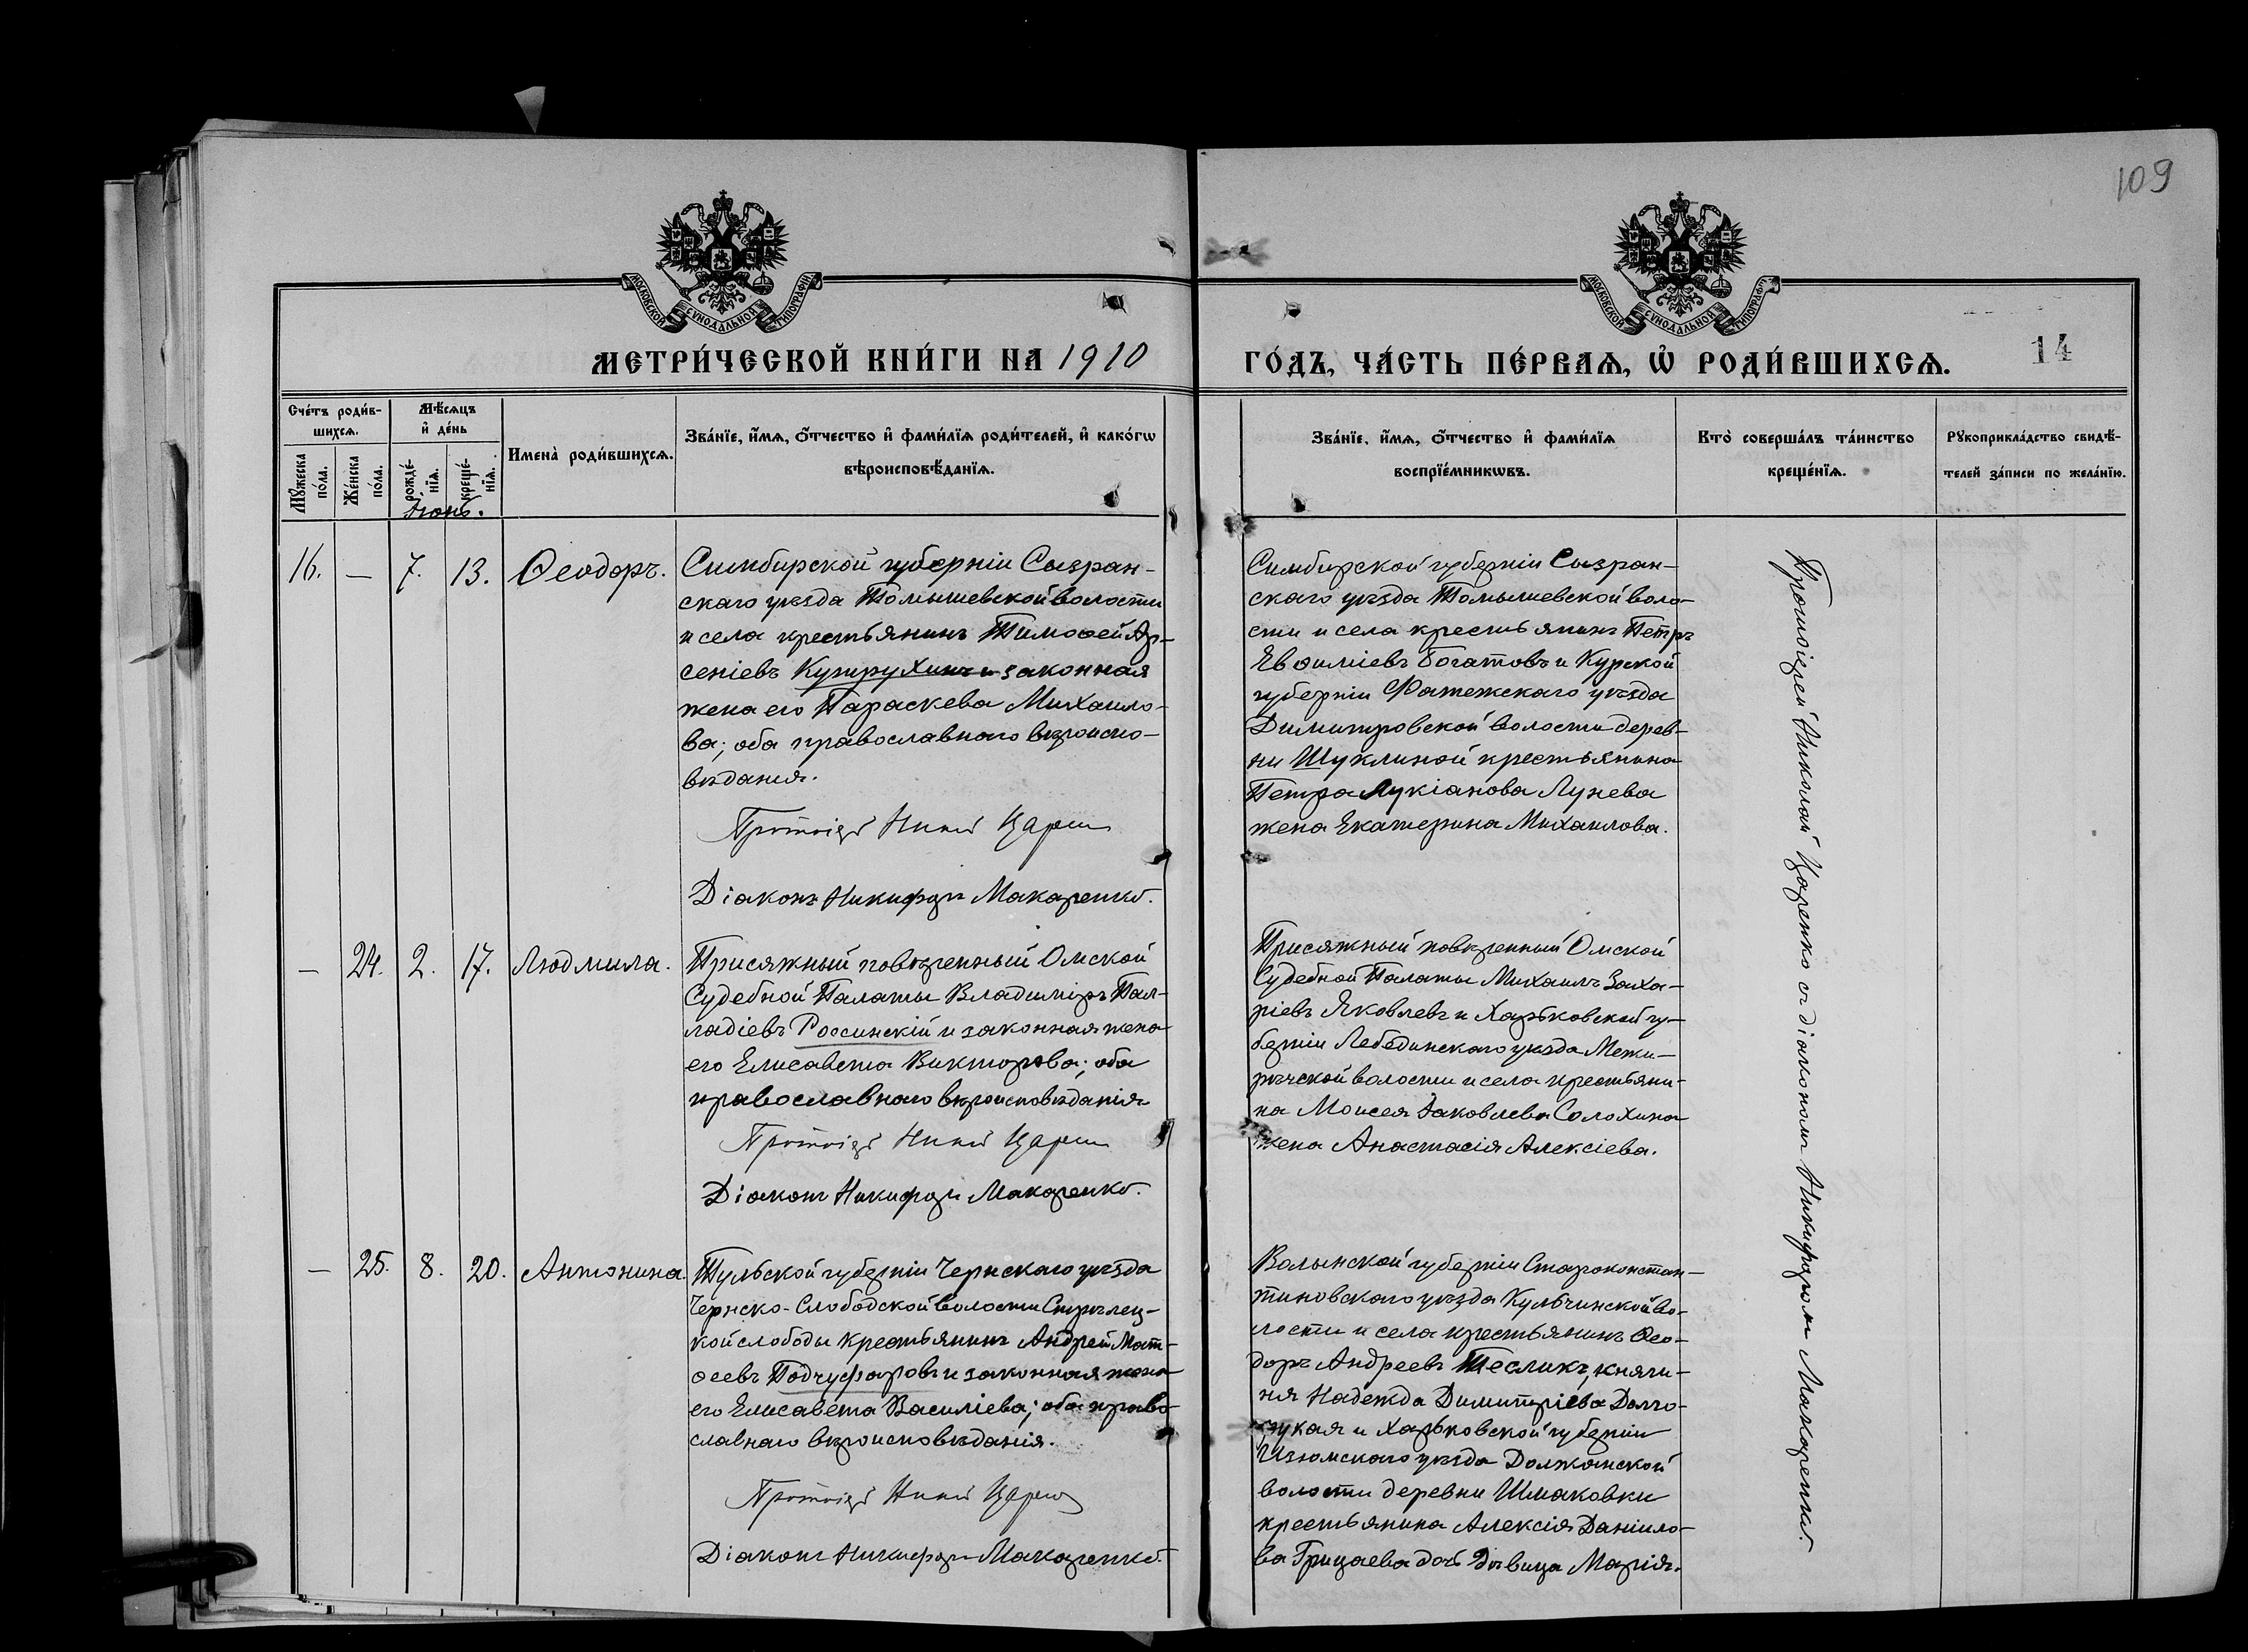 109
МОСКОВСКОЙ СѴНОДАЛЬНОЙ ТИПОГРАФІИ
МОСКОВСКОЙ СѴНОДАЛЬНОЙ ТИПОГРАФІИ
МЕТРИ́ЧЕСКОЙ КНИ́ГИ НА 1910
ГО́ДЪ, ЧА́СТЬ ПЕ́РВАѦ, Ѡ҆ РОДИ́ВШИХСѦ.
14
Сче́тъ роди́в-
шихсѧ.
Мꙋ́жеска по́ла.
Же́нска по́ла.
Мѣ́сѧцъ
и҆ де́нь
рожде́-
нїѧ.
креще́-
нїѧ.
Іюнь.
Имена̀ роди́вшихсѧ.
Зва́нїе, и҆́мѧ, ѻ҆́тчество и҆ фами́лїѧ роди́телей, и҆ како́гѡ
вѣроисповѣ́данїѧ.
Зва́нїе, и҆́мѧ, ѻ҆́тчество и҆ фами́лїѧ
воспрїе́мникѡвъ.
Кто̀ соверша́лъ та́инство
креще́нїѧ.
Рꙋкоприкла́дство свидѣ́-
телей за́писи по жела́нїю.
16. — 7. 13. Ѳеодоръ.
Симбирской губерніи Сызран-
скаго уѣзда Томышевской волости
и села крестьянинъ Тимоѳей Ар-
сеніевъ Купрухинъ и законная
жена его Параскева Михаило-
ва; оба православнаго вѣроиспо-
вѣданія.
Протоіер Никол Царен
Діаконъ Никифоръ Макаренко.
Симбирской губерніи Сызран-
скаго уѣзда Томышевской воло-
сти и села крестьянинъ Петръ
Евѳиміевъ Богатовъ и Курской
губерніи Фатежскаго уѣзда
Димитровской волости дерев-
ни Шуклиной крестьянина
Петра Лукіанова Лунева
жена Екатерина Михаилова.
Протоіерей Николай Царенко съ діакономъ Никифоромъ Макаренко.
— 24. 2. 17. Людмила.
Присяжный повѣренный Омской
Судебной Палаты Владиміръ Пал-
ладіевъ Россинскій и законная жена
его Елисавета Викторова; оба
православнаго вѣроисповѣданія
Протоіер Никол Царен
Діаконъ Никифоръ Макаренко.
Присяжный повѣренный Омской
Судебной Палаты Михаилъ Заха-
ріевъ Яковлевъ и Харьковской гу-
берніи Лебединскаго уѣзда Межи-
рѣчской волости и села крестьяни-
на Моисея Іаковлева Солохина
жена Анастасія Алексіева.
— 25. 8. 20. Антонина.
Тульской губерніи Чернскаго уѣзда
Чернско-Слободской волости Стрѣлец-
кой слободы крестьянинъ Андрей Мат-
ѳеевъ Подчуфаровъ и законная жена
его Елисавета Василіева; оба право-
славнаго вѣроисповѣданія.
Протоіер Никол Царен
Діаконъ Никифоръ Макаренко.
Волынской губерніи Староконстан-
тиновскаго уѣзда Кульчинской во-
лости и села крестьянинъ Ѳео-
доръ Андреевъ Тесликъ, княги-
ня Надежда Димитріева Долго-
рукая и Харьковской губерніи
Изюмскаго уѣзда Должанской
волости деревни Шмаковки
крестьянина Алексія Даніило-
ва Грицаева дочь дѣвица Марія.